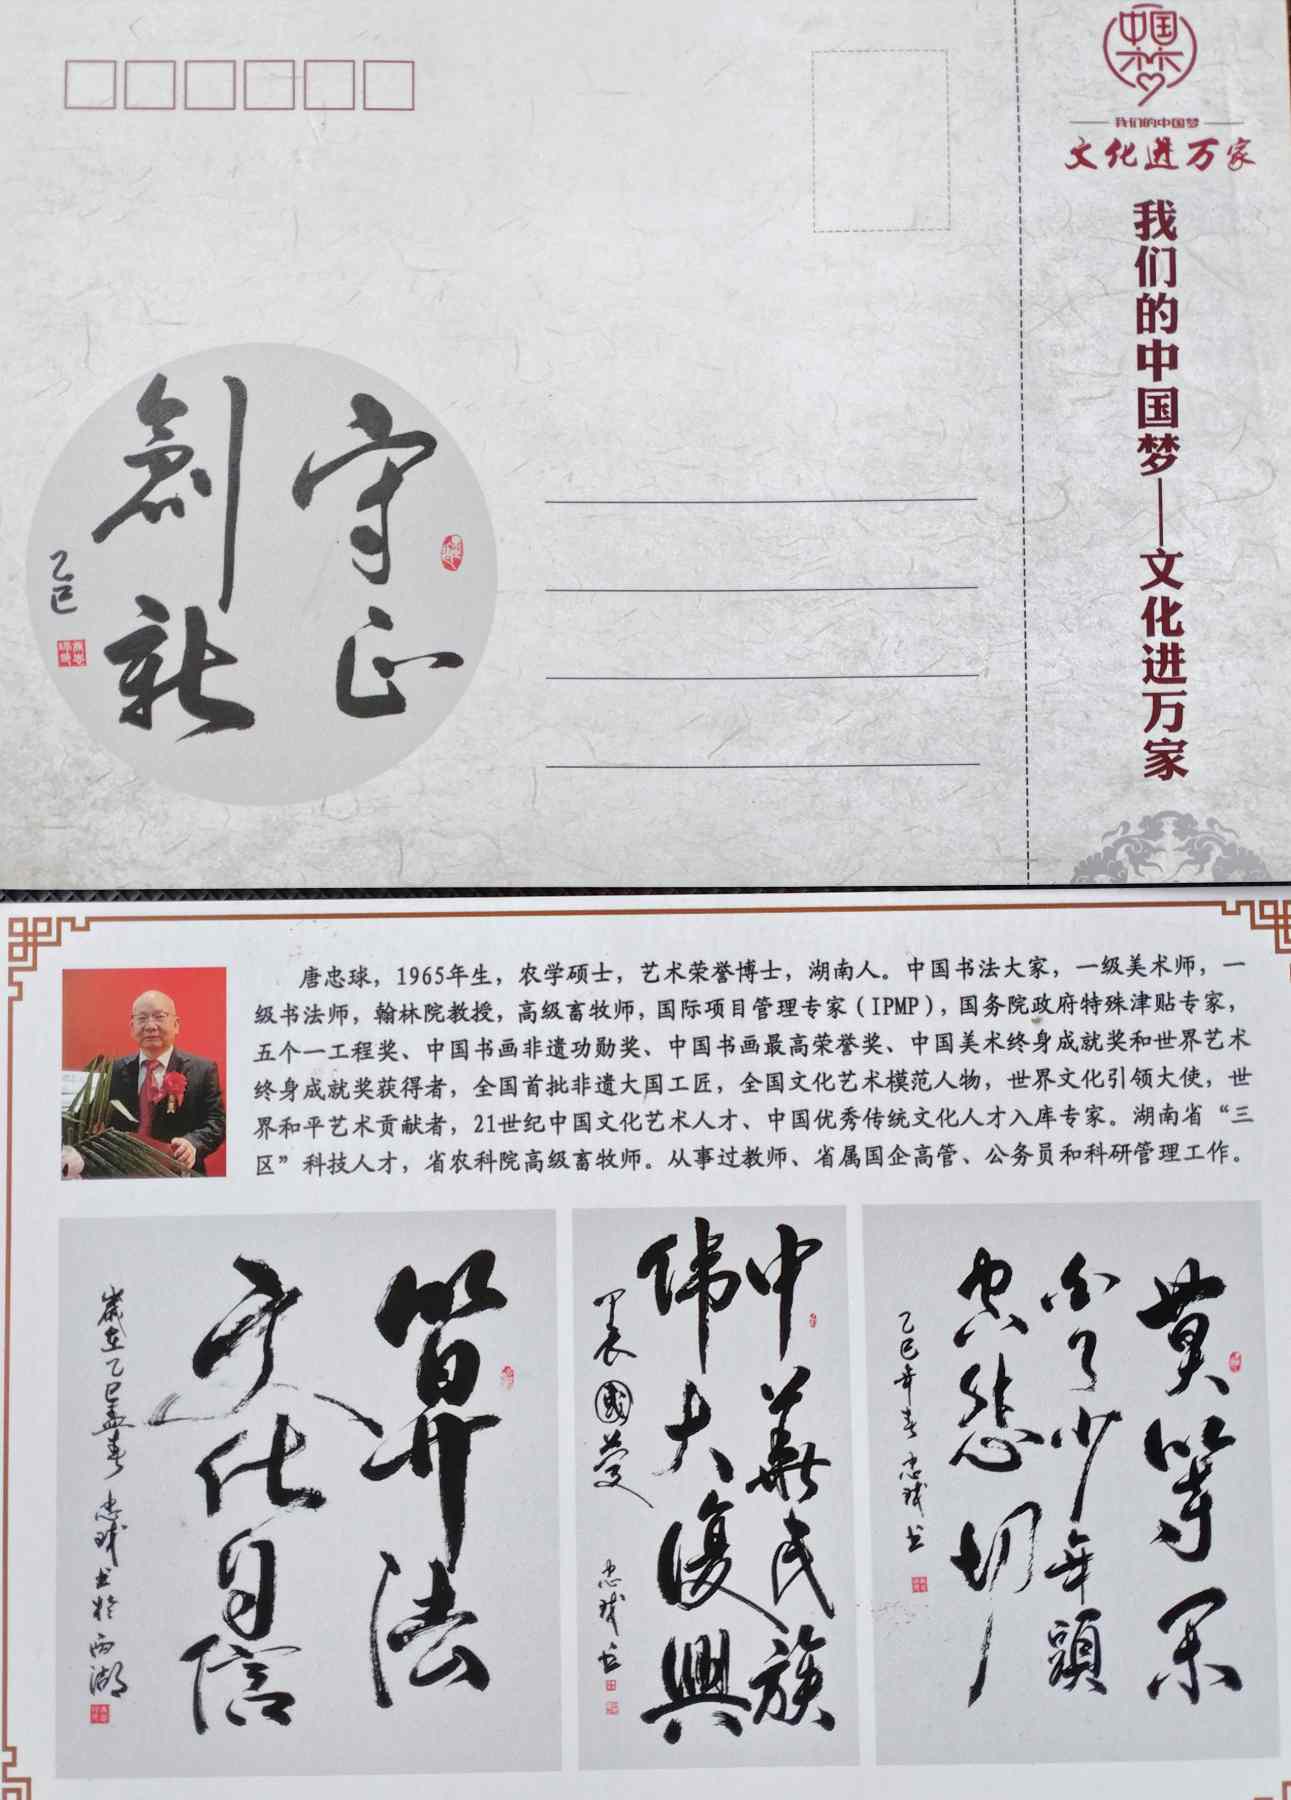 中国梦
我们的中国梦
文化进万家
我们的中国梦——文化进万家
守正
創新
乙巳
唐忠球，1965年生，农学硕士，艺术荣誉博士，湖南人。中国书法大家，一级美术师，一
级书法师，翰林院教授，高级畜牧师，国际项目管理专家（IPMP），国务院政府特殊津贴专家，
五个一工程奖、中国书画非遗功勋奖、中国书画最高荣誉奖、中国美术终身成就奖和世界艺术
终身成就奖获得者，全国首批非遗大国工匠，全国文化艺术模范人物，世界文化引领大使，世
界和平艺术贡献者，21世纪中国文化艺术人才、中国优秀传统文化人才入库专家。湖南省“三
区”科技人才，省农科院高级畜牧师。从事过教师、省属国企高管、公务员和科研管理工作。
莫等闲
白了少年頭
空悲切
乙巳年春 忠球书
中華民族
偉大復興
甲辰國慶 忠球书
算法
文化自信
歲在乙巳孟春 忠球书於西湖